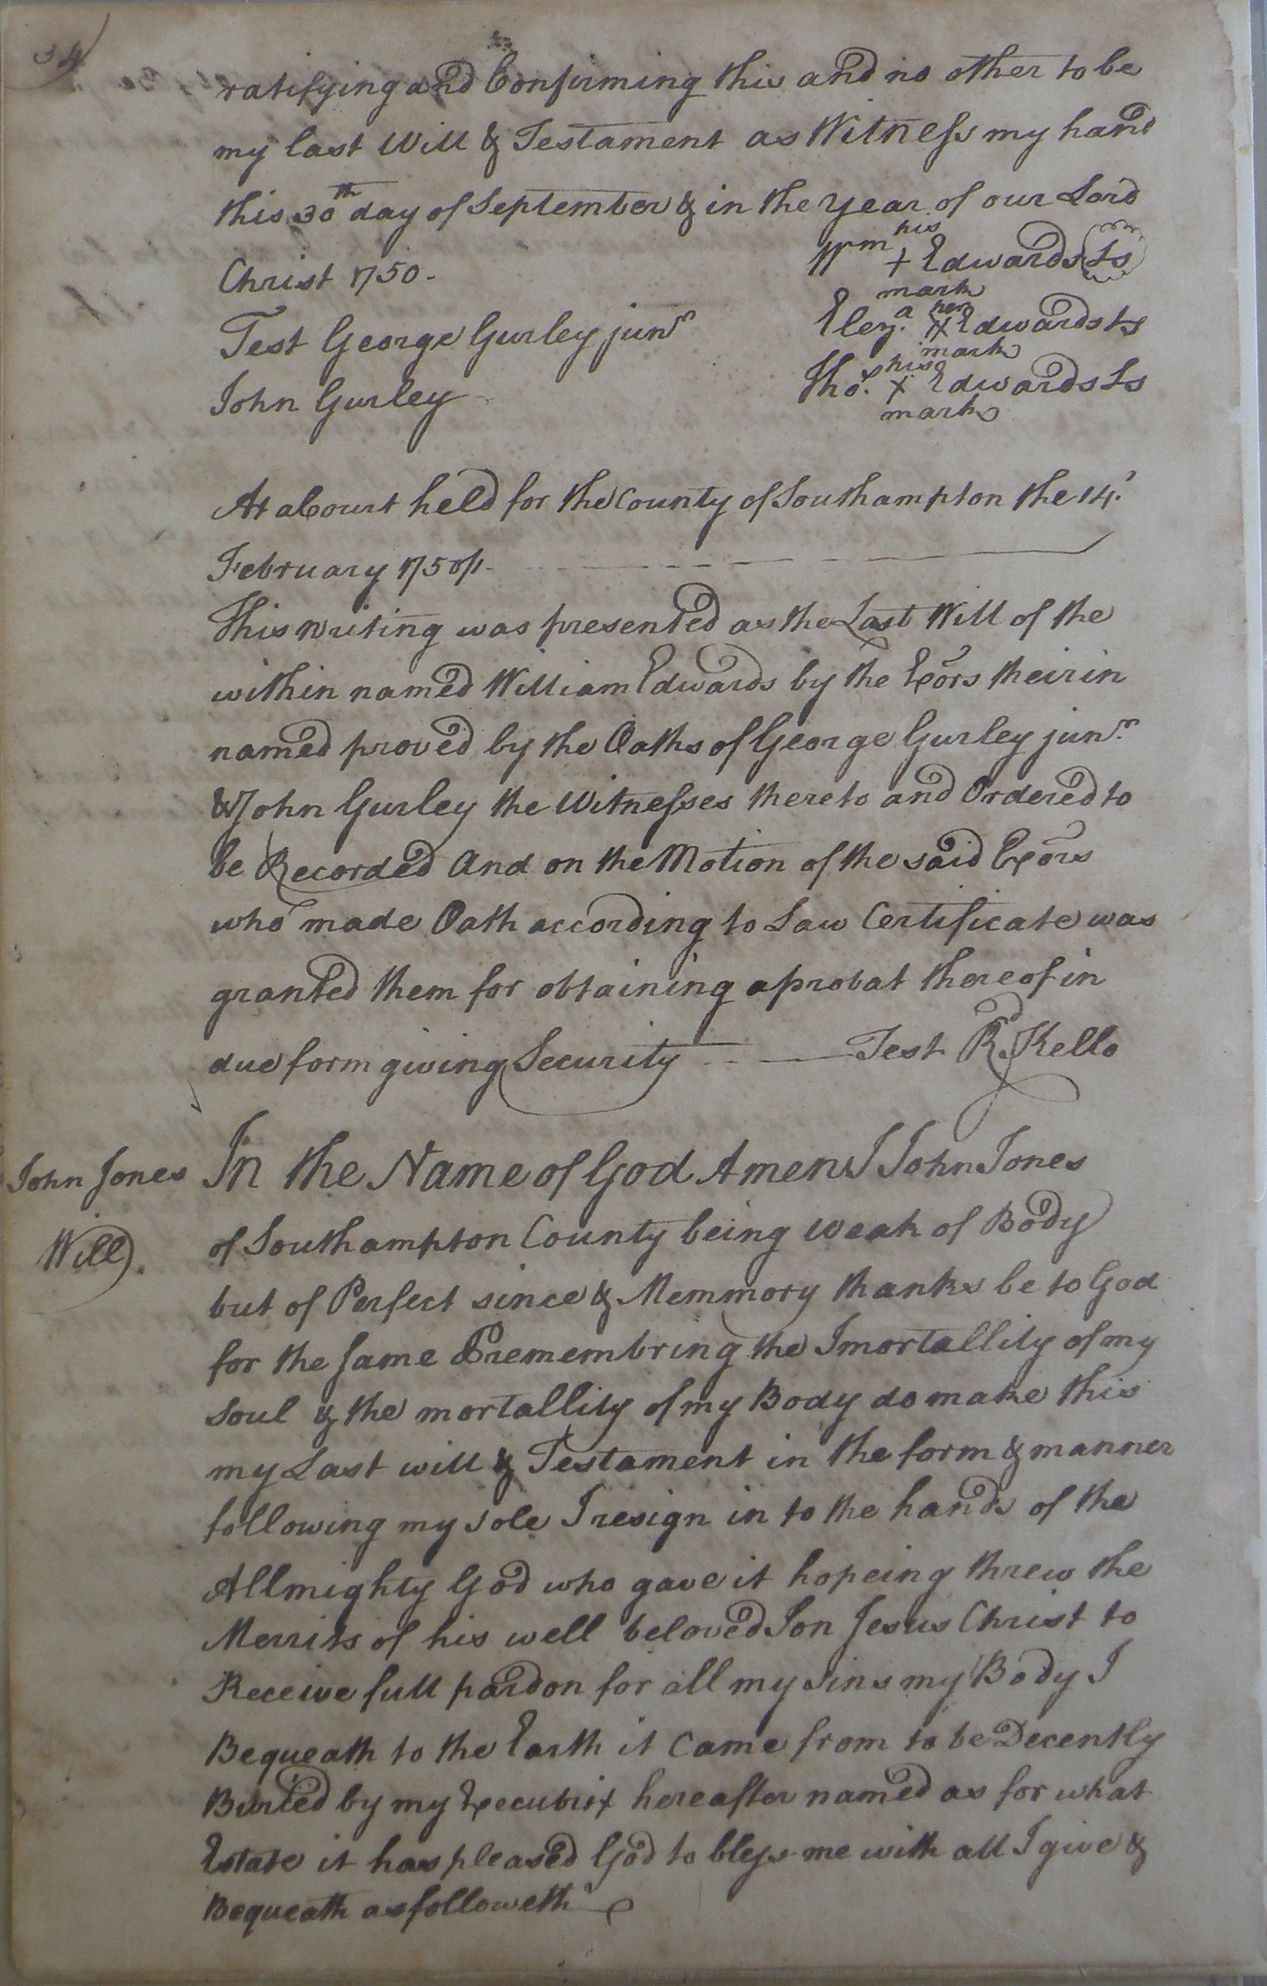 34
ratifying and Confirming this and no other to be
my last Will & Testament as Witness my hand
this 30th day of September & in the year of our Lord
Christ 1750.
Wm his + mark Edwards Ls
Test George Gurley junr
Elez.a her X mark Edwards Ls
John Gurley
Thos. his X mark Edwards Ls
At a Court held for the County of Southampton the 14.
February 1750/1
This writing was presented as the Last Will of the
within named William Edwards by the Exors theirin
named proved by the Oaths of George Gurley junr.
& John Gurley the Witnesses thereto and Ordered to
be Recorded And on the Motion of the said Exors
who made Oath according to Law Certificate was
granted them for obtaining a probat thereof in
due form giving Security Test Rd. Kello
John Jones
Will
In the Name of God Amen I John Jones
of Southampton County being weak of Body
but of Perfect since & Memmory thanks be to God
for the same remembring the Imortallity of my
Soul & the mortallity of my Body do make this
my Last will & Testament in the form & manner
following my sole I resign in to the hands of the
Allmighty God who gave it hopeing threw the
Merrits of his well beloved Son Jesus Christ to
Receive full pardon for all my sins my Body I
Bequeath to the Earth it Came from to be Decently
Buried by my Executrix hereafter named as for what
Estate it has pleased God to bless me with all I give &
Bequeath as followeth